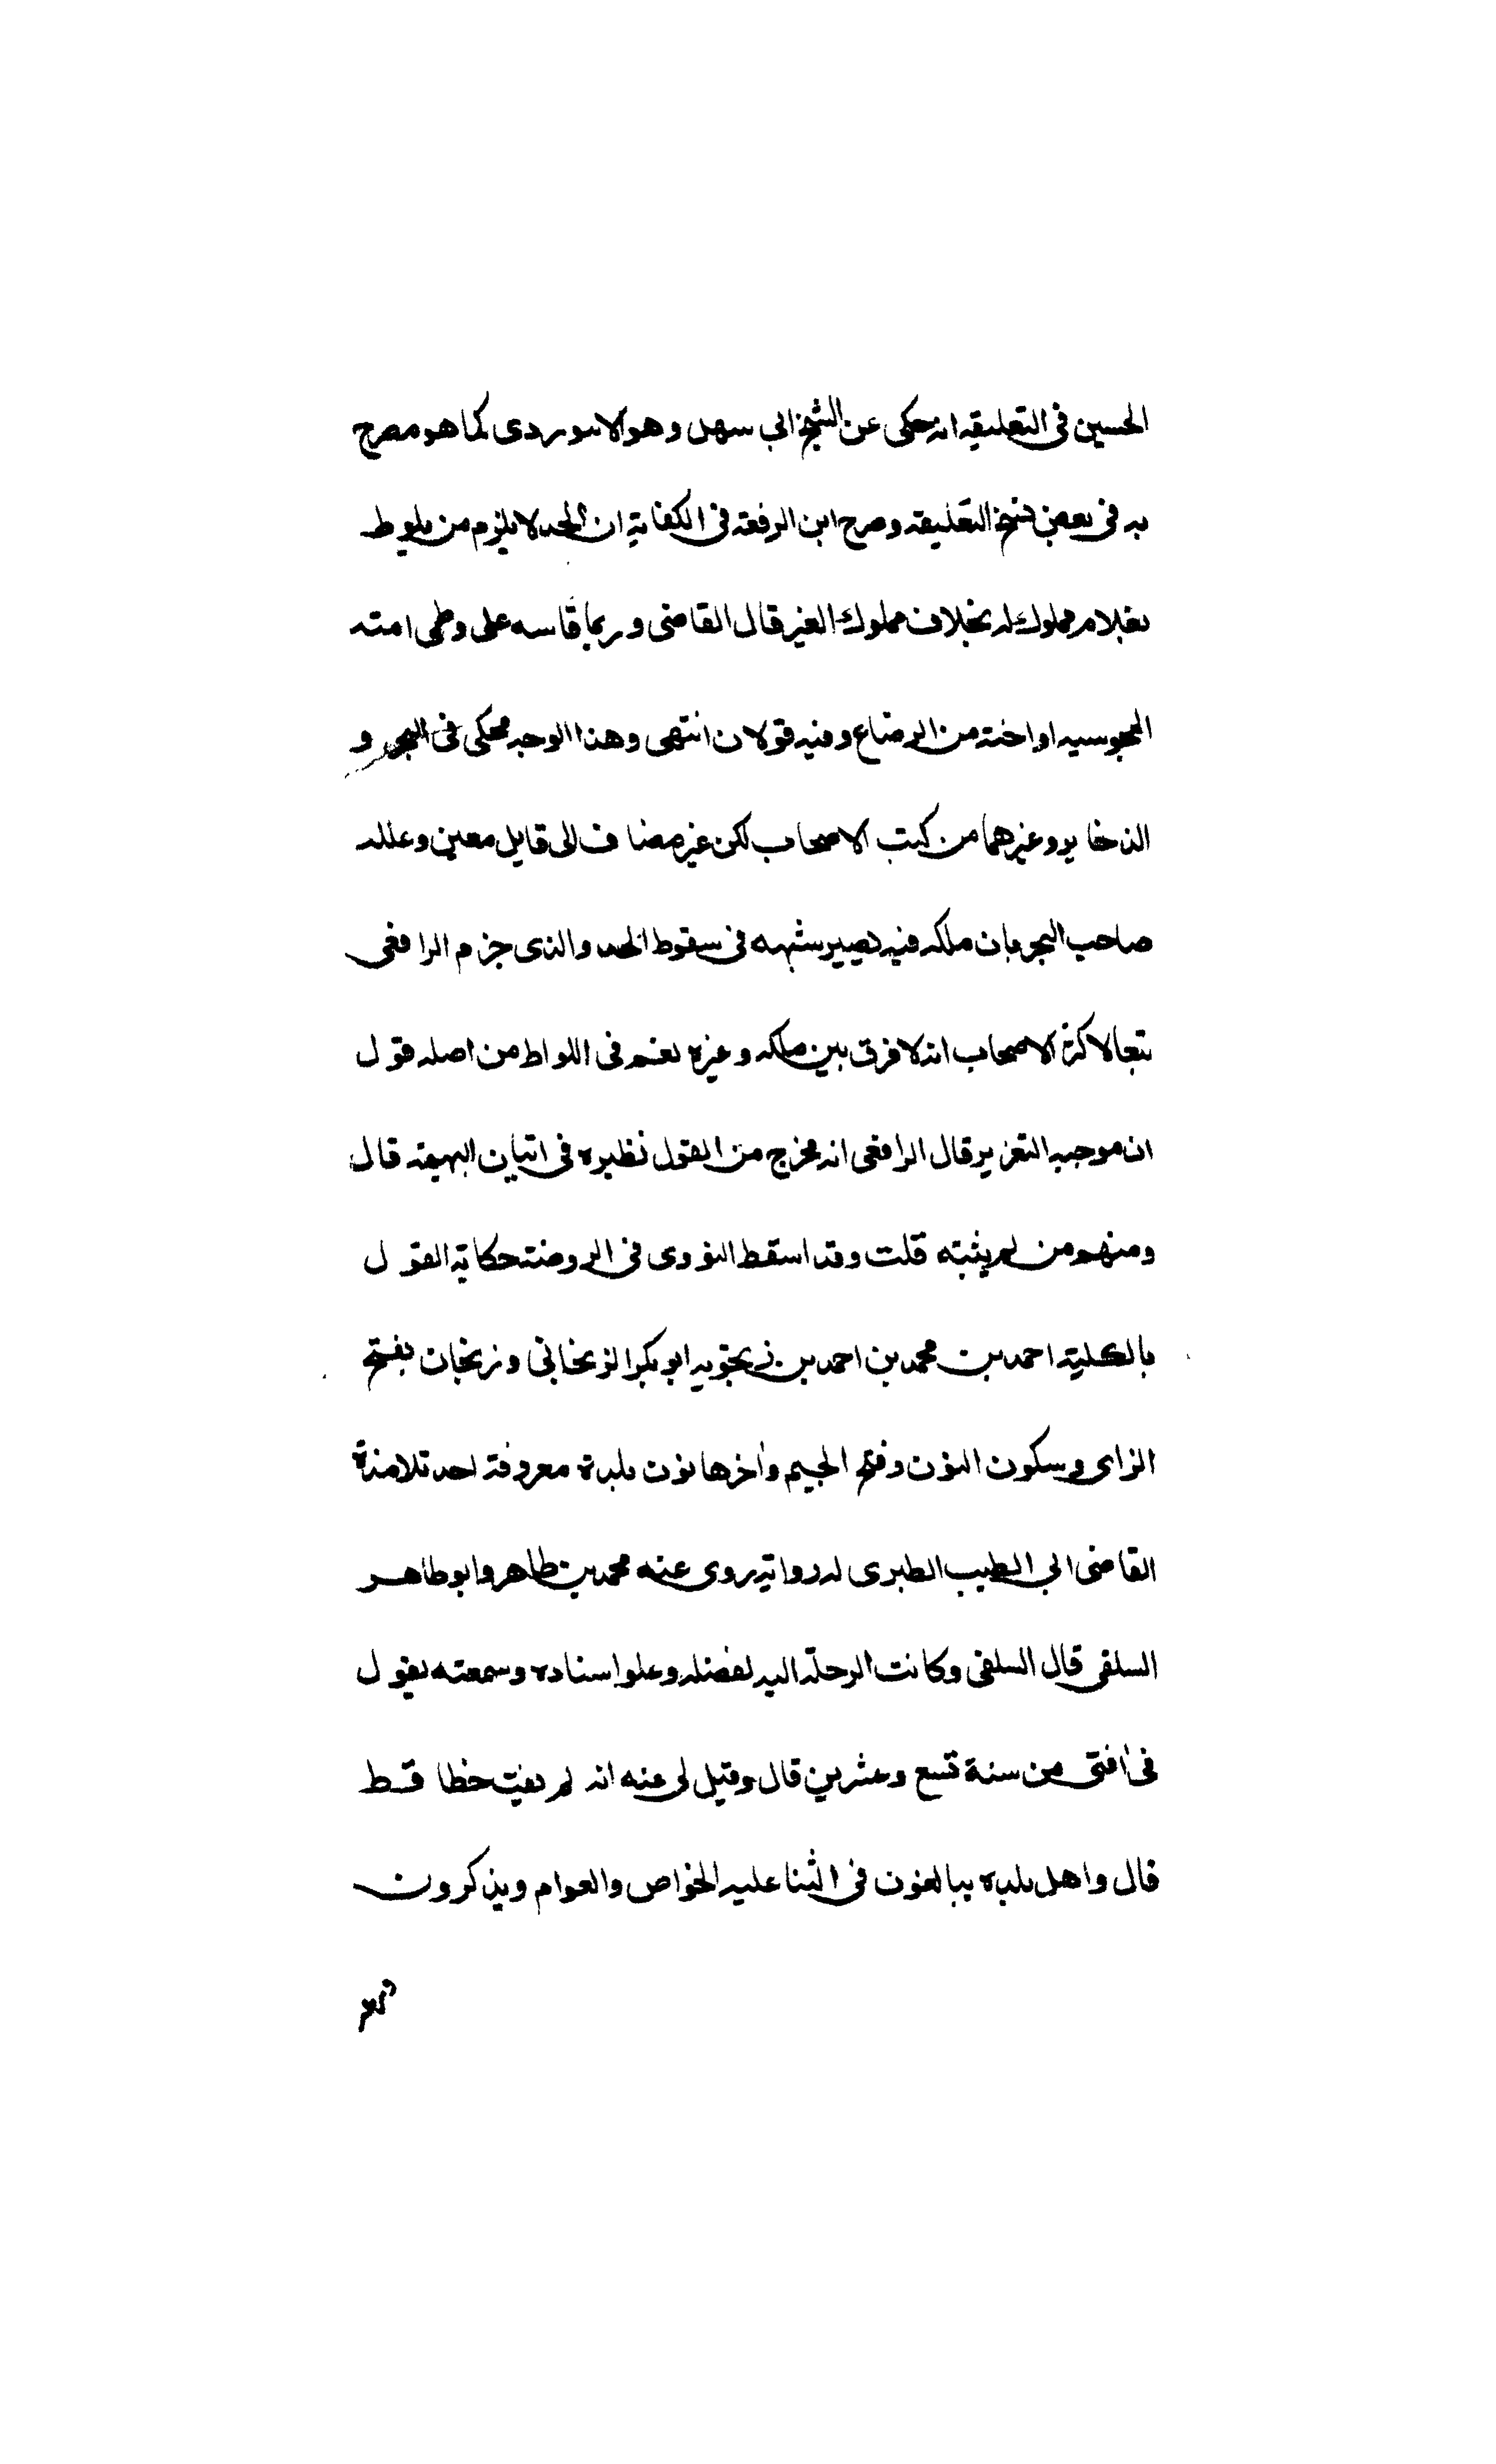 الحسين فى التعليقه انه حكى عن الشيخ ابى سهل وهو الابيوردى كما هو مصرح
به فى بعض نسخ التعليقه وصرح ابن الرفعة فى الكفاية ان الحد لا يلزم من يلوط
بغلام مملوك له بخلاف مملوك الغير قال القاضى وربما قاسه على وطى امته
المجوسيه او اخته من الرضاع وفيه قولان انتهى وهذا الوجه محكى فى البحر و
الذخاير وغيرهما من كتب الاصحاب لكن غير مضاف الى قايل معين وعلله
صاحب البحر بان ملكه فيه يصير شبهه فى سقوط الحد والذى جزم الرافعى
تبعا لاكثر الاصحاب انه لا فرق بين ملكه وغيره نعم فى اللواط من اصله قول
ان موجبه التعزير قال الرافعى انه مخرج من القول نظيره فى اتيان البهيمة قال
ومنهم من لم يثبته قلت وقد اسقط النووى فى الروضة حكاية القول
بالكلية احمد بن محمد بن احمد بن زنجويه ابو بكر الزنجانى وزنجان بفتح
الزاى وسكون النون وفتح الجيم واخرها نون بلدة معروفة احد تلامذة
القاضى ابى الطيب الطبرى له رواية روى عنه محمد بن طاهر وابو طاهر
السلفى قال السلفى وكانت الرحلة اليه لفضله وعلو اسناده وسمعته يقول
فى افتى من سنة تسع وعشرين قال وقيل لى عنه انه لم يفت خطا قط
قال واهل بلده يبالغون فى الثنا عليه الخواص والعوام ويذكرون